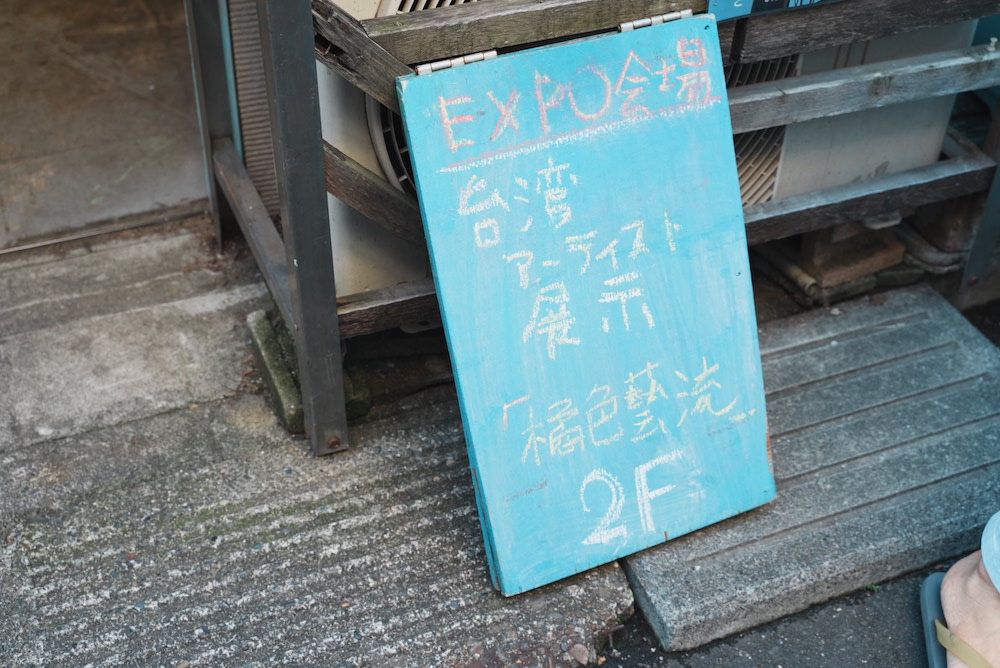 EXPO会場
台湾
アーティスト
展示
「橘色藝流」
2F